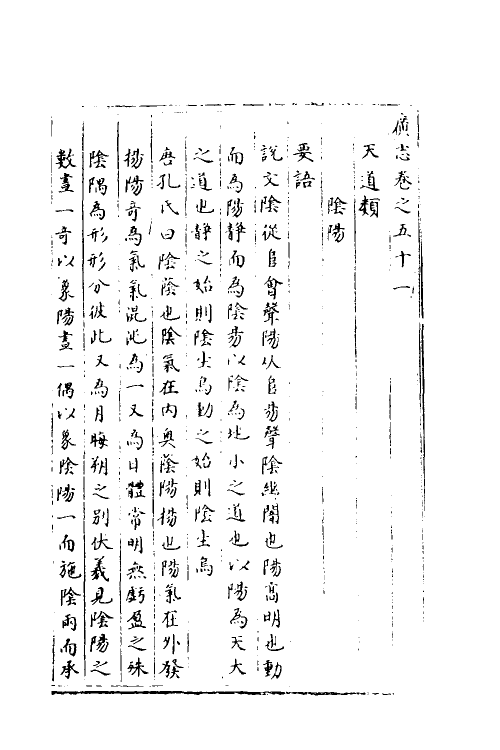 廣志卷之五十一
天道類
陰陽
要語
說文陰從𨸏會聲陽从𨸏昜聲陰幽闇也陽高明也動
而為陽靜而為陰昜以陰為地小之道也以陽為天大
之道也靜之始則陰生焉動之始則陰生焉
唐孔氏曰陰蔭也陰氣在內奥蔭陽揚也陽氣在外發
揚陽奇為氣氣混沌為一又為日體常明無虧盈之殊
陰隅為形形分彼此又為月晦朔之別伏羲見陰陽之
數畫一奇以象陽畫一偶以象陰陽一而施陰兩而承